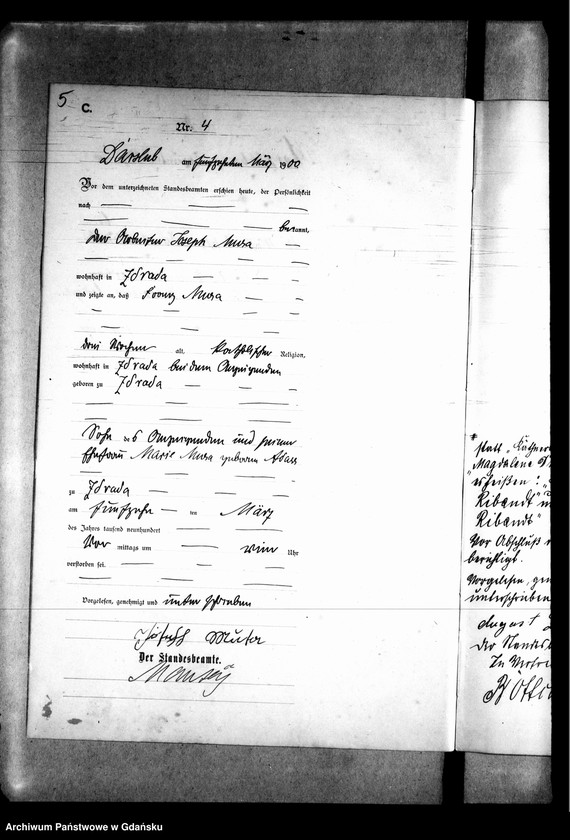 5
C.
Nr. 4
Darslub am fünfzehnten März 1900
Vor dem unterzeichneten Standesbeamten erschien heute, der Persönlichkeit
nach
bekannt,
der Arbeiter Joseph Musa
wohnhaft in Zdrada
und zeigte an, daß Franz Musa
drei Wochen alt, katholischer Religion,
wohnhaft in Zdrada bei dem Anzeigenden
geboren zu Zdrada
Sohn des Anzeigenden und seiner
Ehefrau Marie Musa geborene
zu Zdrada
am fünfzehnten März
des Jahres tausend neunhundert
Vor mittags um Uhr
verstorben sei.
Vorgelesen, genehmigt und unterschrieben
Joseph
Der Standesbeamte.
statt
Magdalene
Ribandt
Ribandt
Vor Abschluß
berichtigt.
Vorgelesen, gen
unterschrieben
August
Der Standes
In Vertre
Archiwum Państwowe w Gdańsku